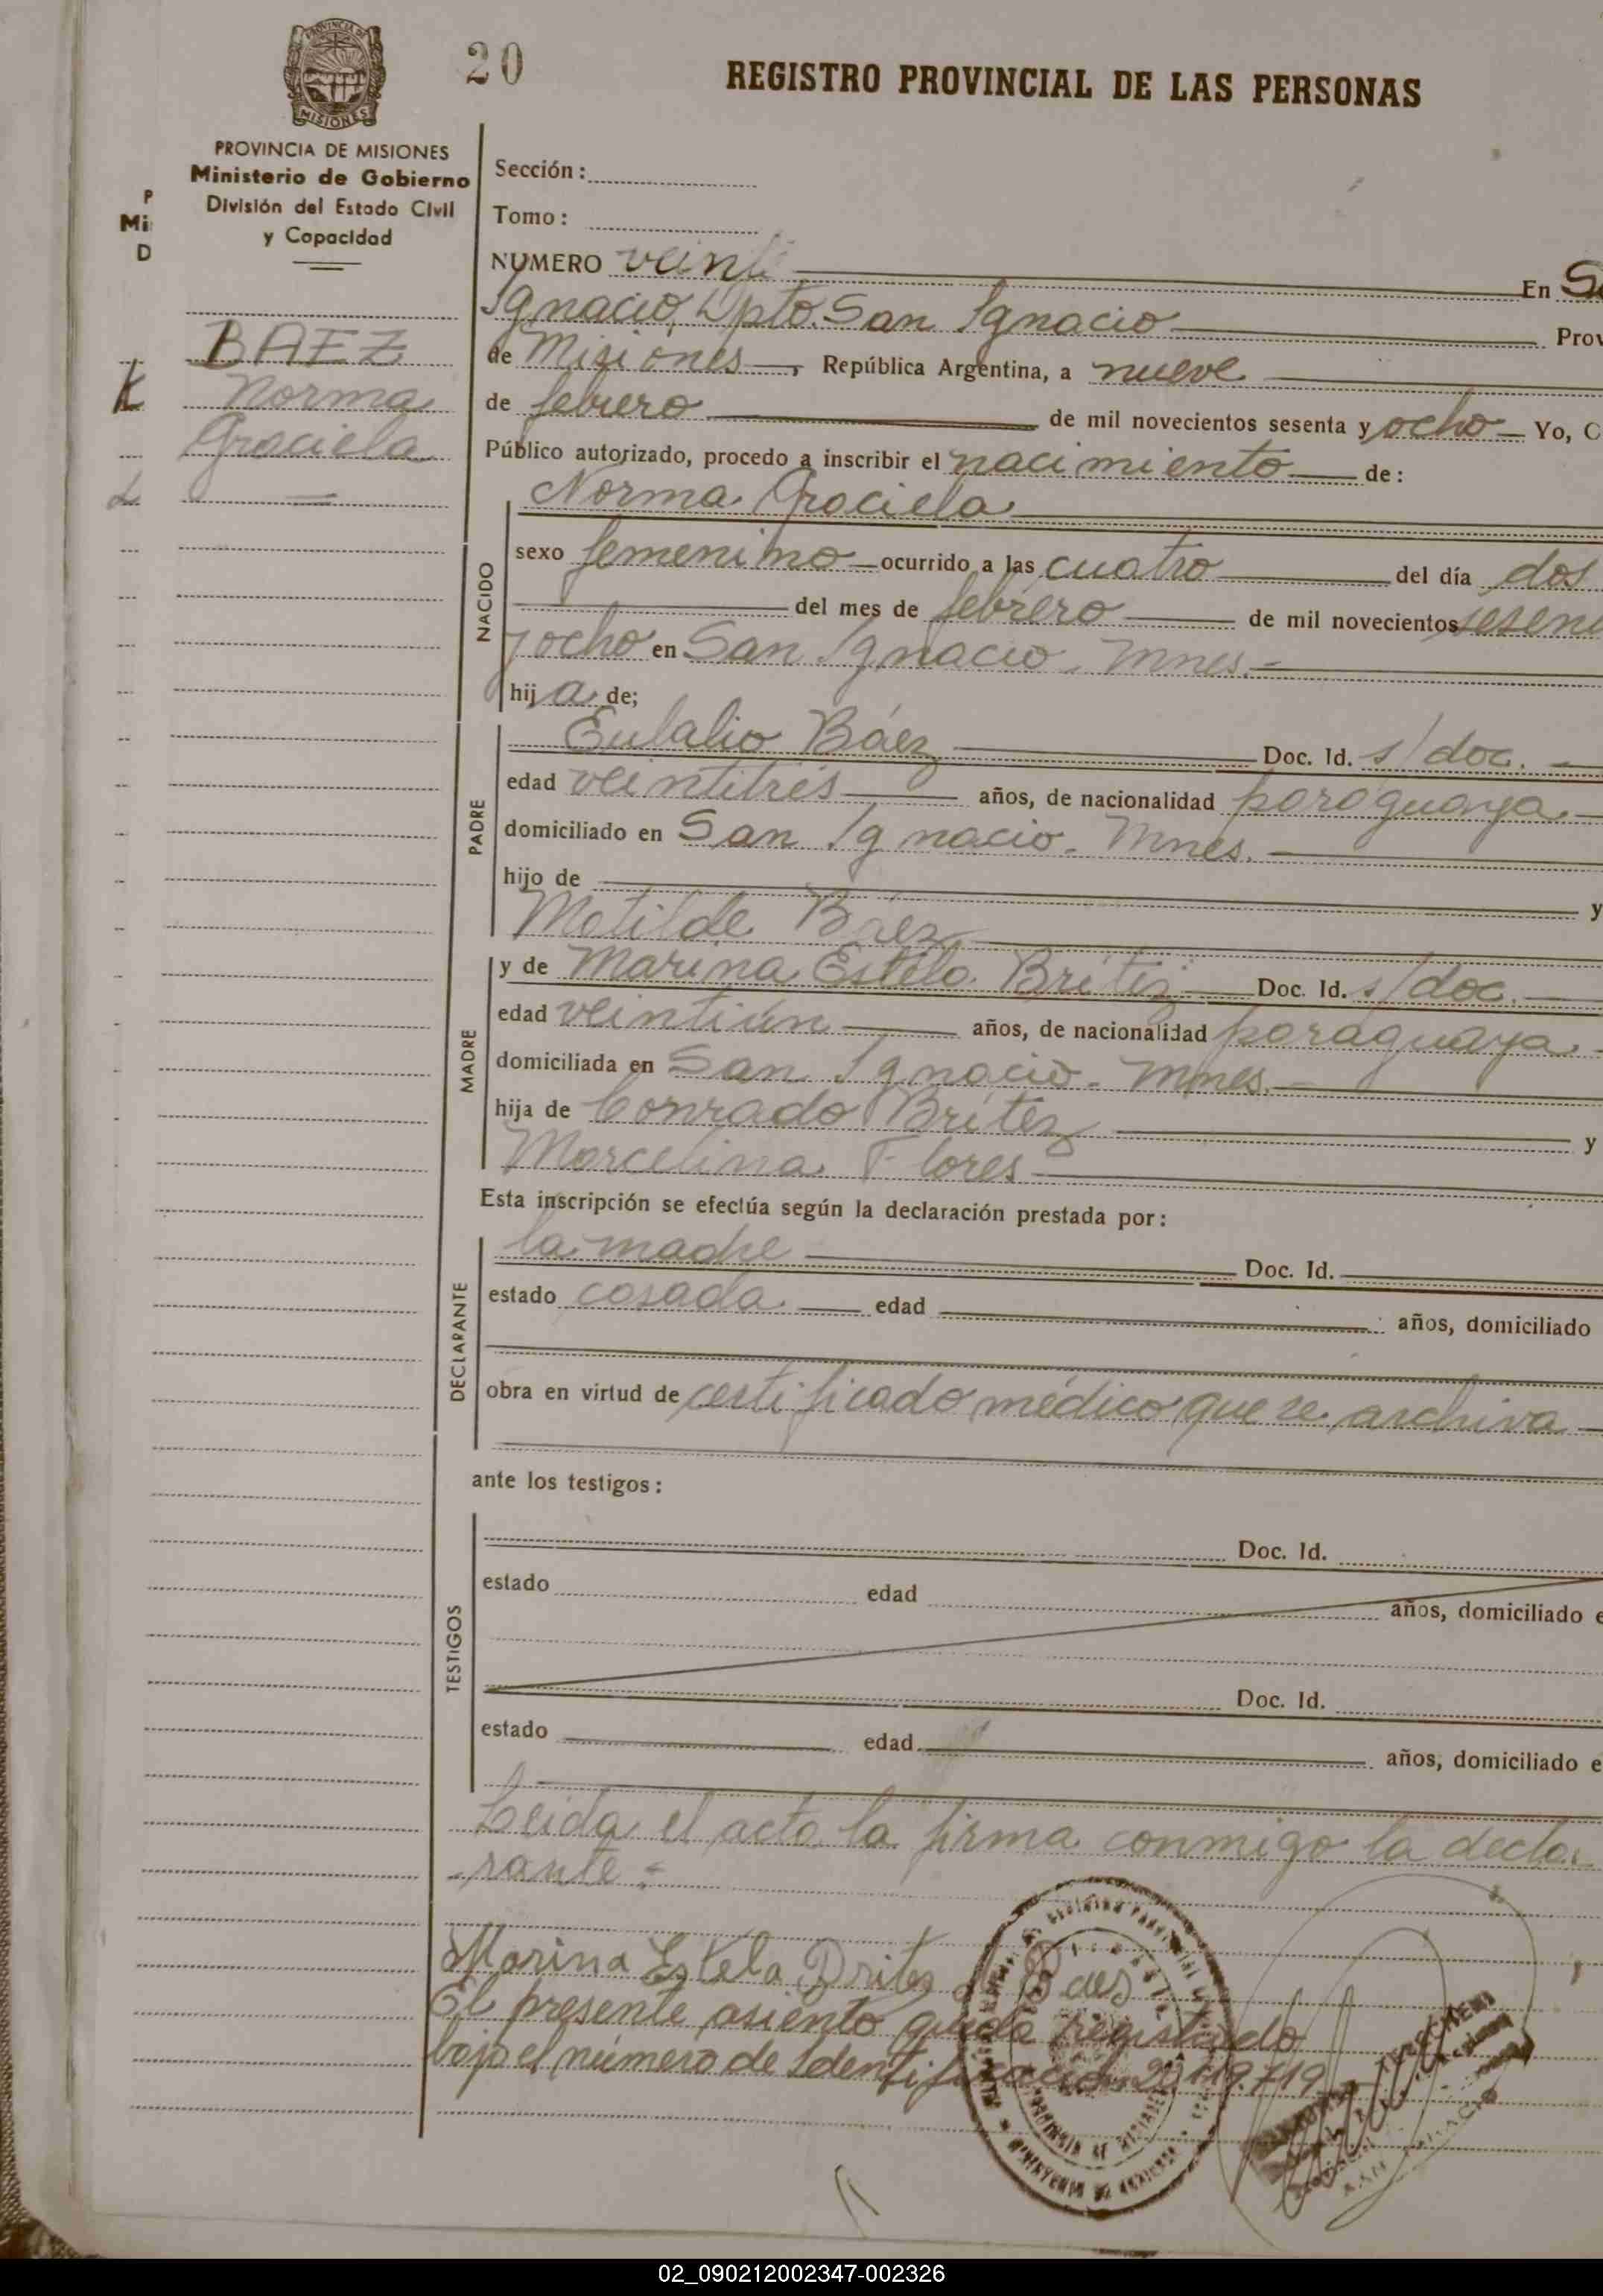 20
REGISTRO PROVINCIAL DE LAS PERSONAS
PROVINCIA DE MISIONES
Ministerio de Gobierno
División del Estado Civil
y Capacidad
P
Mi
D
BAEZ
Norma
Graciela
Sección:
Tomo:
NUMERO veinte En S
Ignacio, Dpto. San Ignacio Prov
de Misiones, República Argentina, a nueve
de febrero de mil novecientos sesenta y ocho Yo, O
Público autorizado, procedo a inscribir el nacimiento de:
NACIDO
Norma Graciela
sexo femenino ocurrido a las cuatro del día dos
del mes de febrero de mil novecientos sesen
y ocho en San Ignacio - Mnes.-
hija de;
PADRE
Eulalio Báez Doc. Id. s/doc.
edad veintitrés años, de nacionalidad paraguaya.
domiciliado en San Ignacio - Mnes.
hijo de y
Matilde Báez
MADRE
y de Marina Estela Britez Doc. Id. s/doc.
edad veintiún años, de nacionalidad paraguaya.
domiciliada en San Ignacio - Mnes.
hija de Conrado Britez y
Marcelina Flores
Esta inscripción se efectúa según la declaración prestada por:
DECLARANTE
la madre Doc. Id.
estado casada edad años, domiciliado
obra en virtud de certificado médico que se archiva
ante los testigos:
TESTIGOS
Doc. Id.
estado edad años, domiciliado e
Doc. Id.
estado edad años, domiciliado e
Leida el acta la firma conmigo la decla-
rante.-
Marina Estela Britez
El presente asiento queda registrado
bajo el número de Identificación
02_090212002347-002326